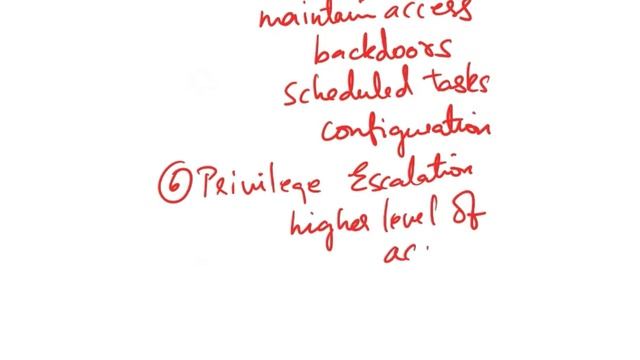 maintain access
backdoors
scheduled tasks
configuration
⑥ Privilege Escalation
higher level of
ac